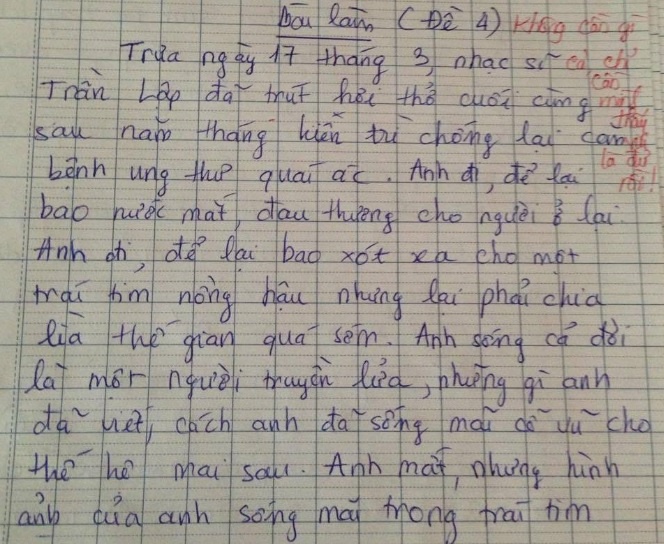 Bài làm (Đề 4) Không cần gì
Trưa ngày 17 tháng 3, nhạc sĩ cả chỉ
Trần Lập đã trút hơi thở cuối cùng cần mất
sau năm tháng kiên trì chống lại căn thầy
bệnh ung thư quái ác. Anh đi, để lại là đủ
bao nước mắt, đau thương cho người ở lại. rồi!
Anh đi, để lại bao xót xa cho một
trái tim nồng hậu nhưng lại phải chia
lìa thế gian quá sớm. Anh sống cả đời
là một người truyền lửa, những gì anh
đã viết, cách anh đã sống mãi cổ vũ cho
thế hệ mai sau. Anh mất, nhưng hình
ảnh của anh sống mãi trong trái tim